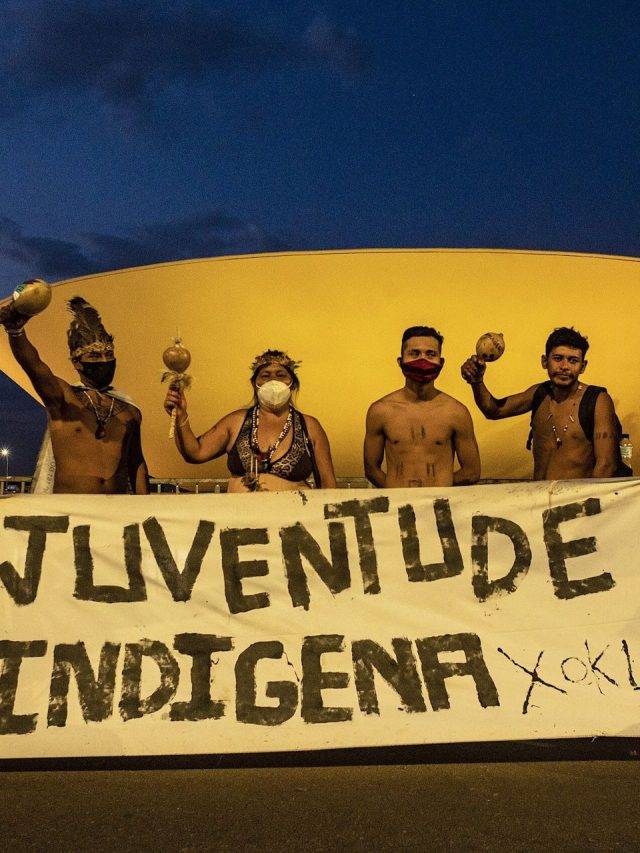 JUVENTUDE
INDIGENA XOKL